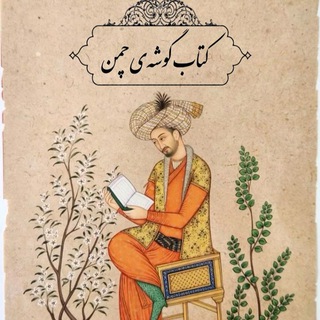 کتاب گوشه‌ی چمن